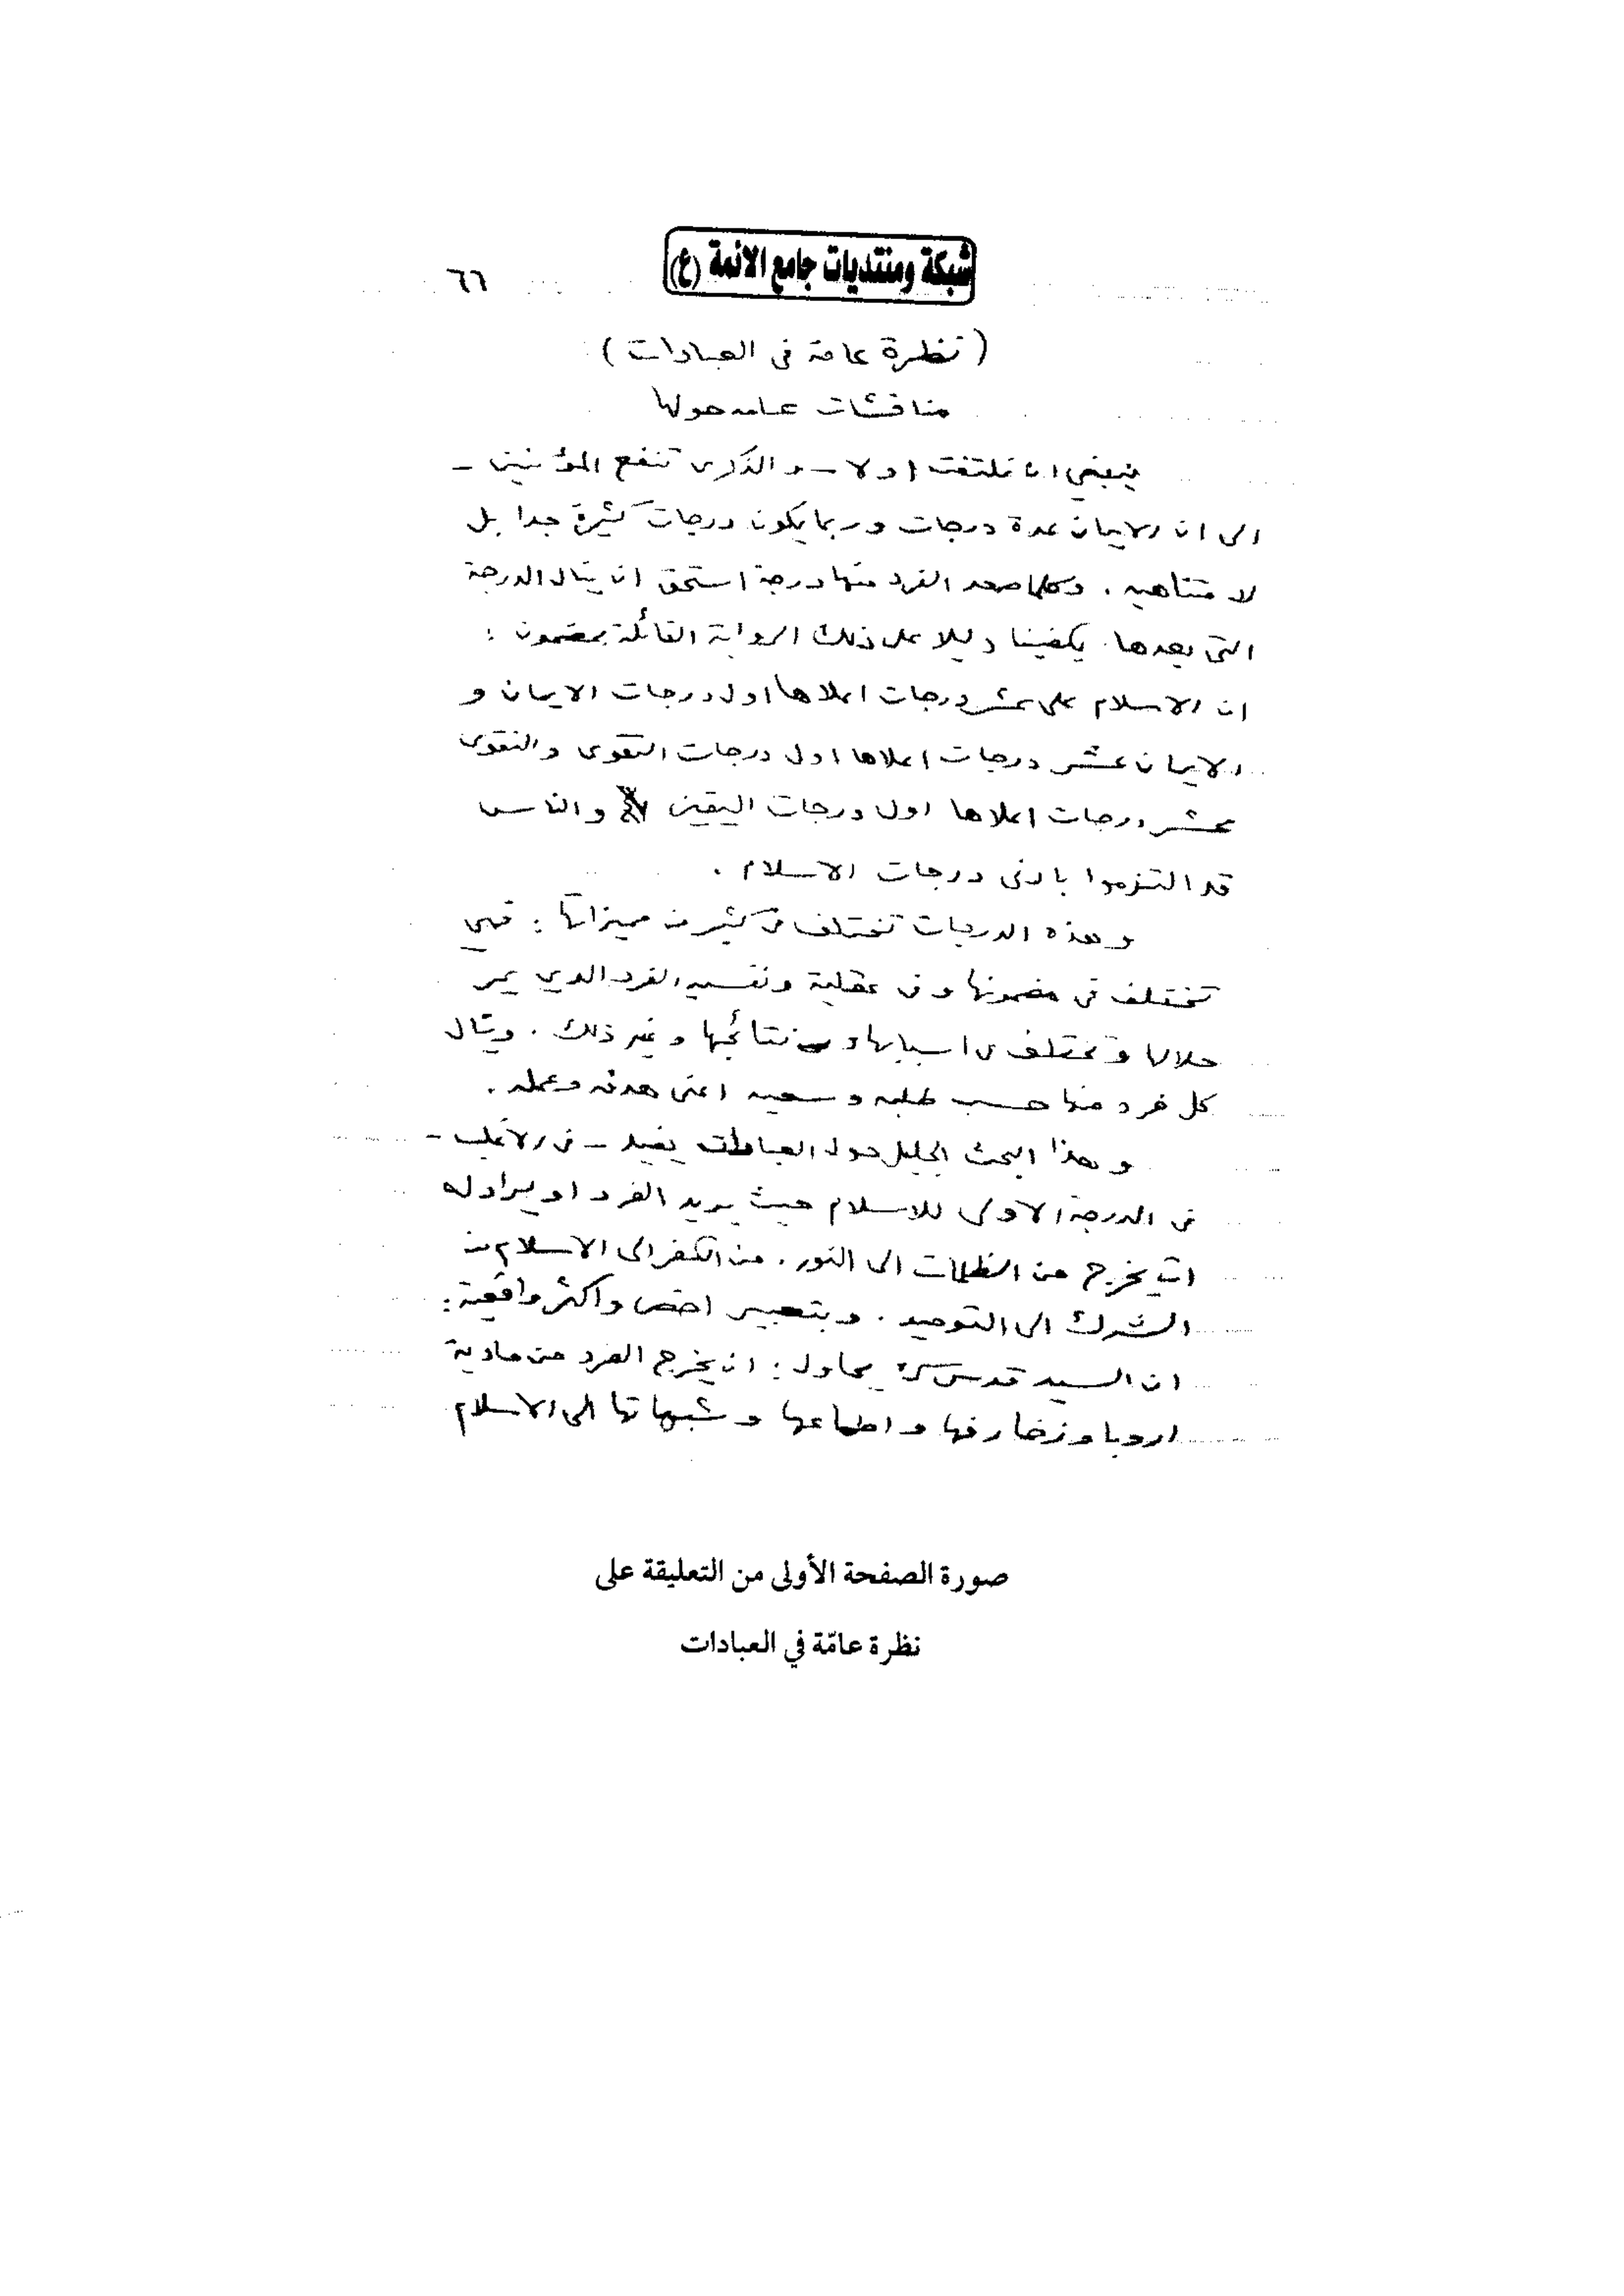 شبكة ومنتديات جامع الائمة (ع)
٦٦
( نظرة عامة في العبادات )
مناقشات عامه حولها
ينبغي ان نلتفت اولا - و الذكرى تنفع المؤمنين -
الى ان للايمان عدة درجات وربما يكون درجات كثيرة جدا بل
لا متناهيه . وكلما صعد الفرد منها درجة استحق ان ينال الدرجة
التي بعدها . يكفينا دليلا على ذلك الرواية القائلة بمضمون :
ان الاسلام على عشر درجات اعلاها اول درجات الايمان و
الايمان عشر درجات اعلاها اول درجات التقوى والتقوى
عشر درجات اعلاها اول درجات اليقين والناس
قد التزموا بادنى درجات الاسلام .
وهذه الدرجات تختلف في كثير من مميزاتها : فهي
تختلف في مضمونها وفي عقلية ونفسيه الفرد الذي يمر
خلالها وتختلف في اسبابها و نتائجها وغير ذلك . وينال
كل فرد منها حسب طلبه وسعيه اعني هدفه وعمله .
وهذا البحث الجليل حول العبادات يفيد - في الاغلب -
في الدرجة الاولى للاسلام حيث يريد الفرد او يراد له
ان يخرج من الظلمات الى النور . من الكفر الى الاسلام من
الشرك الى التوحيد . وبتعبير اخص واكثر واقعية :
ان السيد قدس سره يحاول : ان يخرج الفرد من مادية
اروبا وزخارفها واطماعها وشبهاتها الى الاسلام
صورة الصفحة الأولى من التعليقة على
نظرة عامّة في العبادات